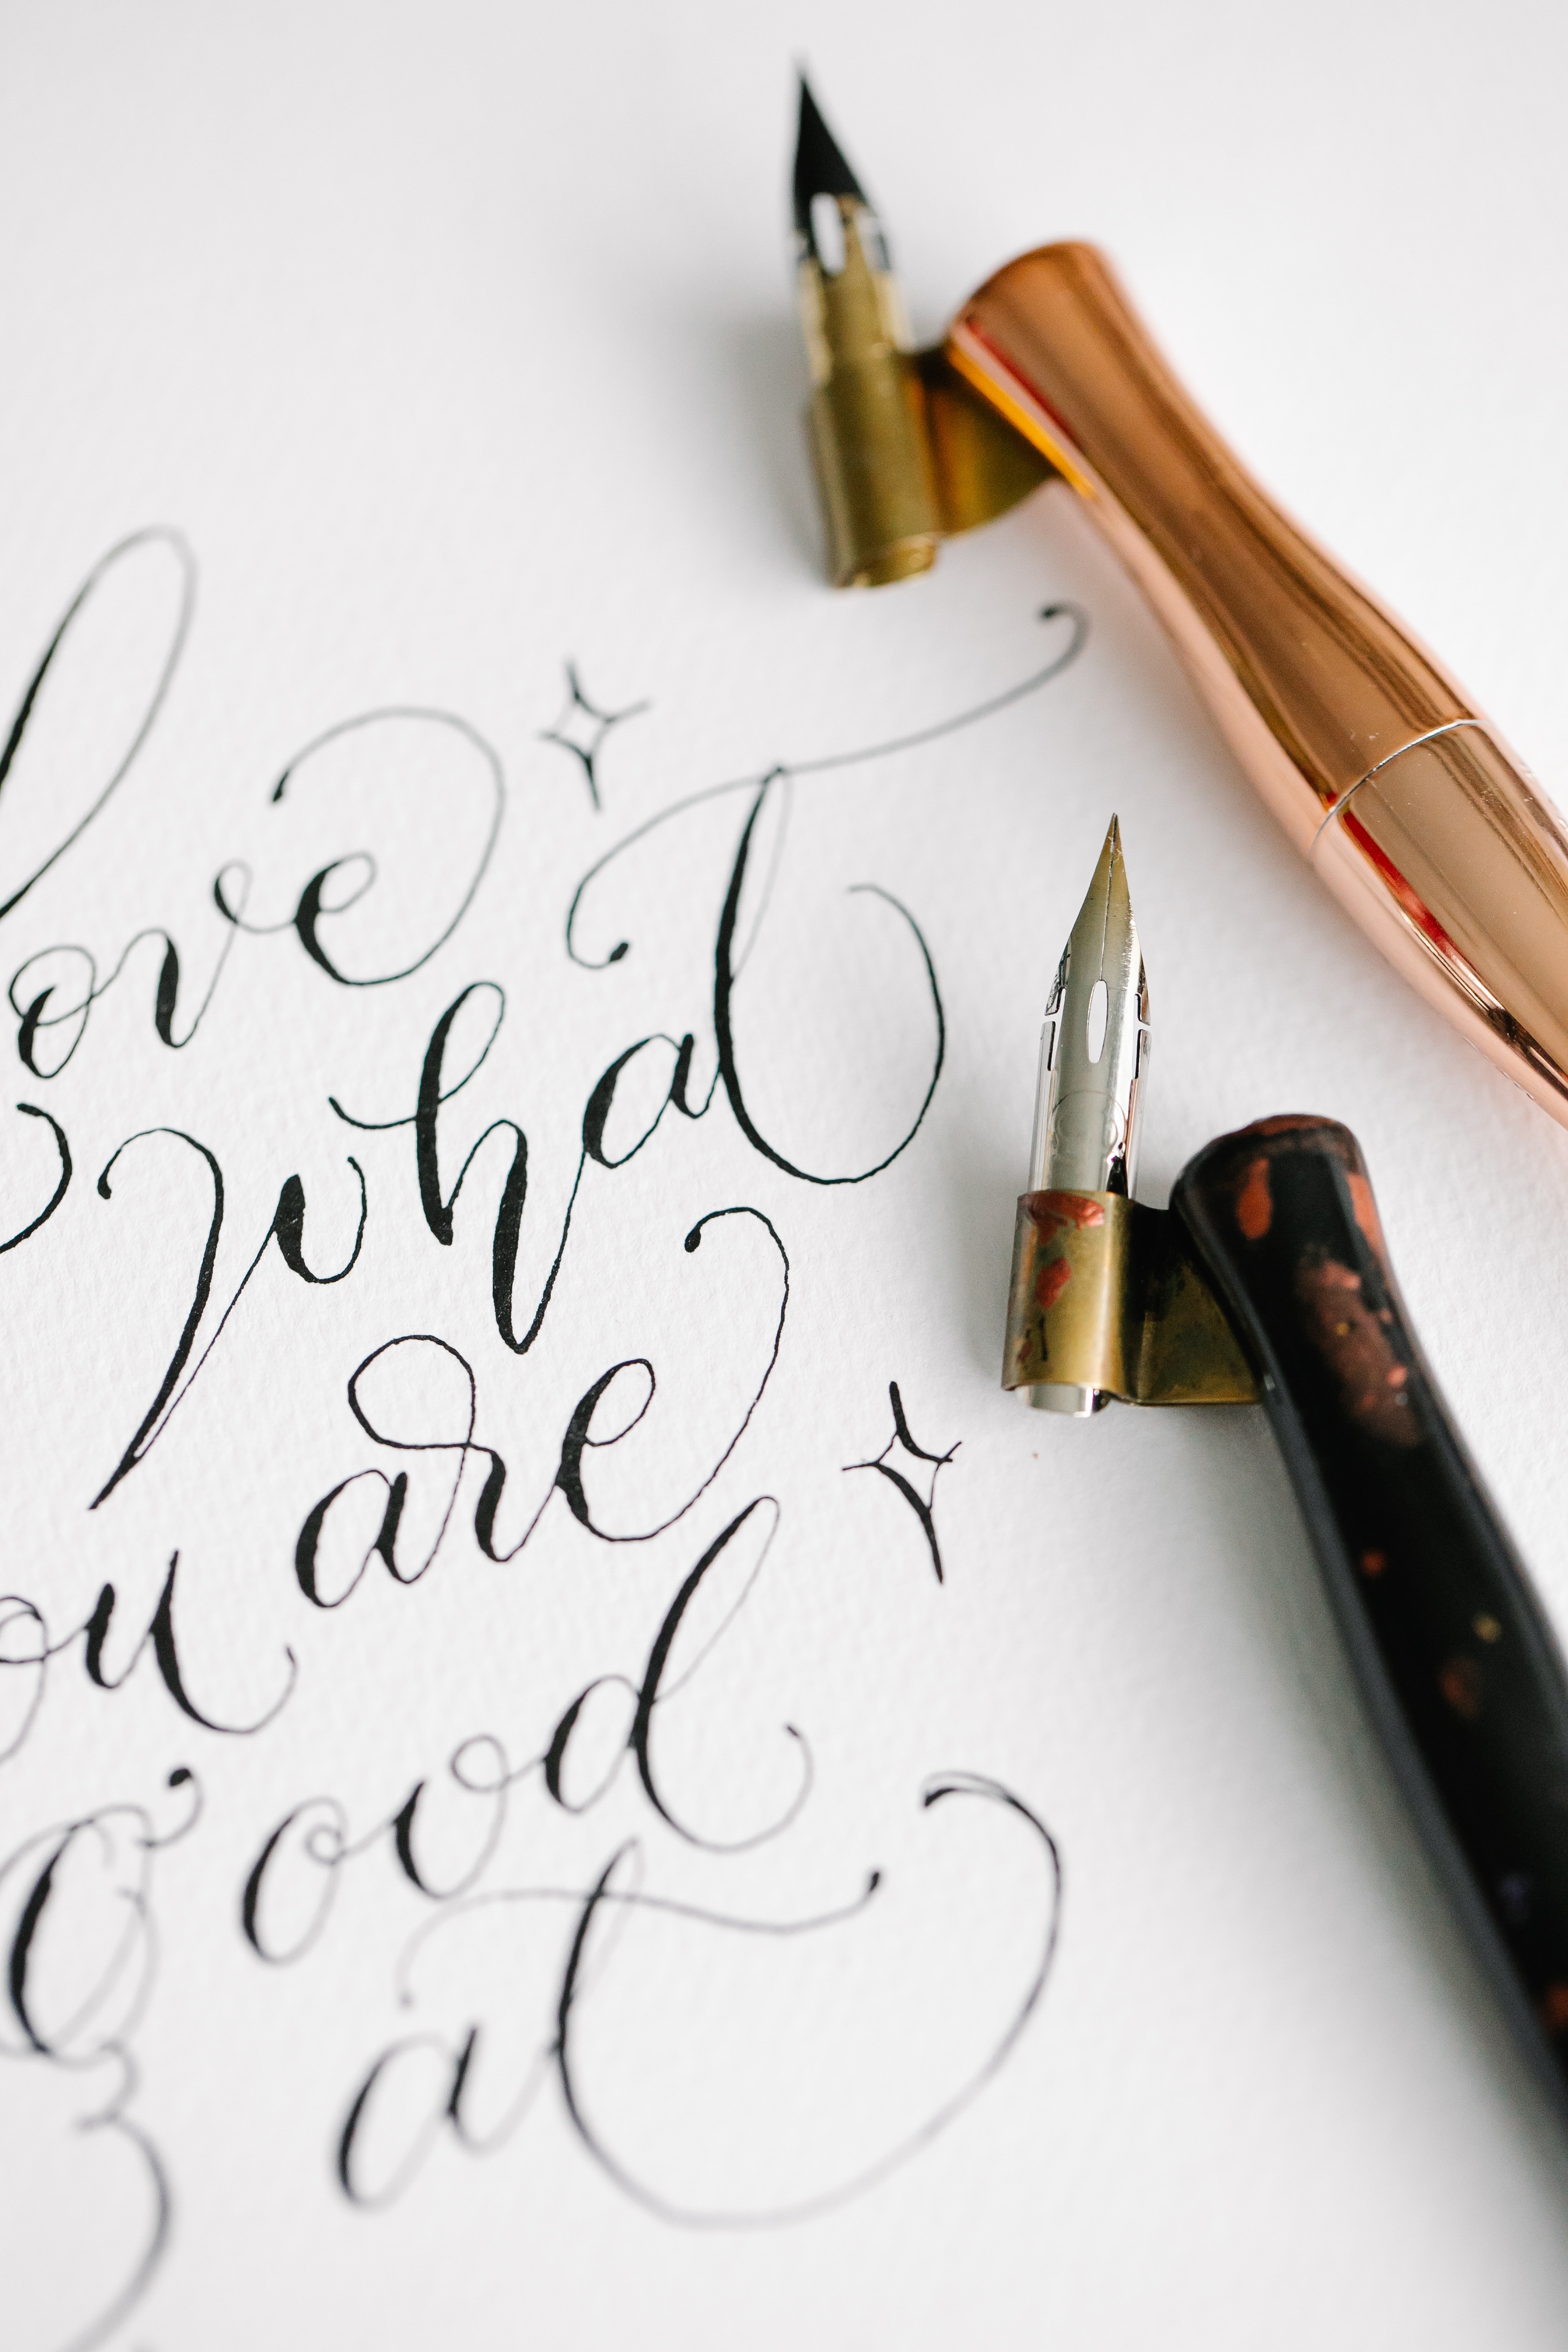 love
what
you are
good
at